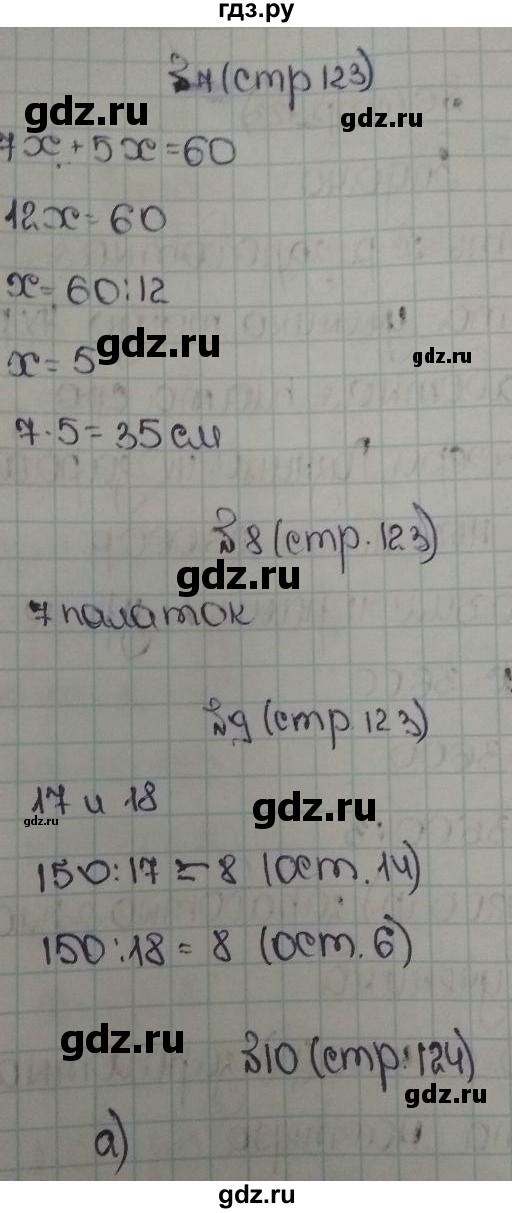 гдз.ру
З7 (стр 123)
gdz.ru
7x + 5x = 60
gdz.ru
12x = 60
x = 60:12
gdz.ru
gdz.ru
x = 5
7·5 = 35 см
З8 (стр. 123)
gdz.ru
7 палаток
З9 (стр 123)
17 и 18
gdz.ru
gdz.ru
150:17 = 8 (ост. 14)
150:18 = 8 (ост. 6)
gdz.ru
З10 (стр. 124)
gdz.ru
а)
gdz.ru